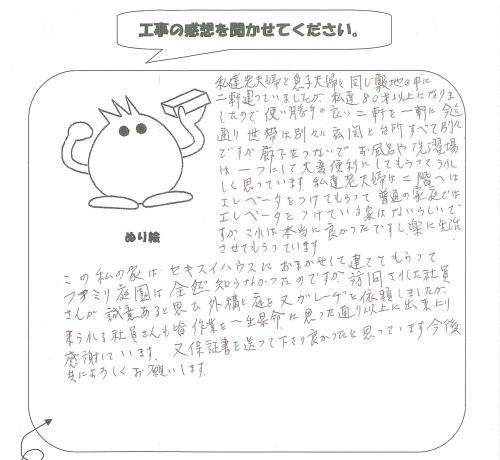 工事の感想を聞かせてください。
私達老夫婦と息子夫婦と同じ敷地の中に
二軒建っていましたが、私達80才以上になりま
したので使い勝手の良い二軒を一軒に今迄
通り世帯は別々に玄関と台所すべて別々
ですが廊下をつないでお風呂や洗濯場
は一つにして大変便利にしてもらってうれ
しく思っています 私達老夫婦は二階へは
エレベータをつけてもらって普通の家庭では
エレベータをつけている家はないらしいで
すが、これは本当に良かったですし楽に生活
させてもらっています
ぬり絵
この私の家はセキスイハウスにおまかせして建ててもらって
ファミリ庭園は全然知らなかったのですが訪問された社員
さんが誠意あると思い外構と庭を又ガレーヂと依頼しましたが、
来られる社員さんも皆作業を一生県命に思った通り以上に出来上り
感謝しています。又保証書を送って下さり良かったと思っています今後
共によろしくお願いします。